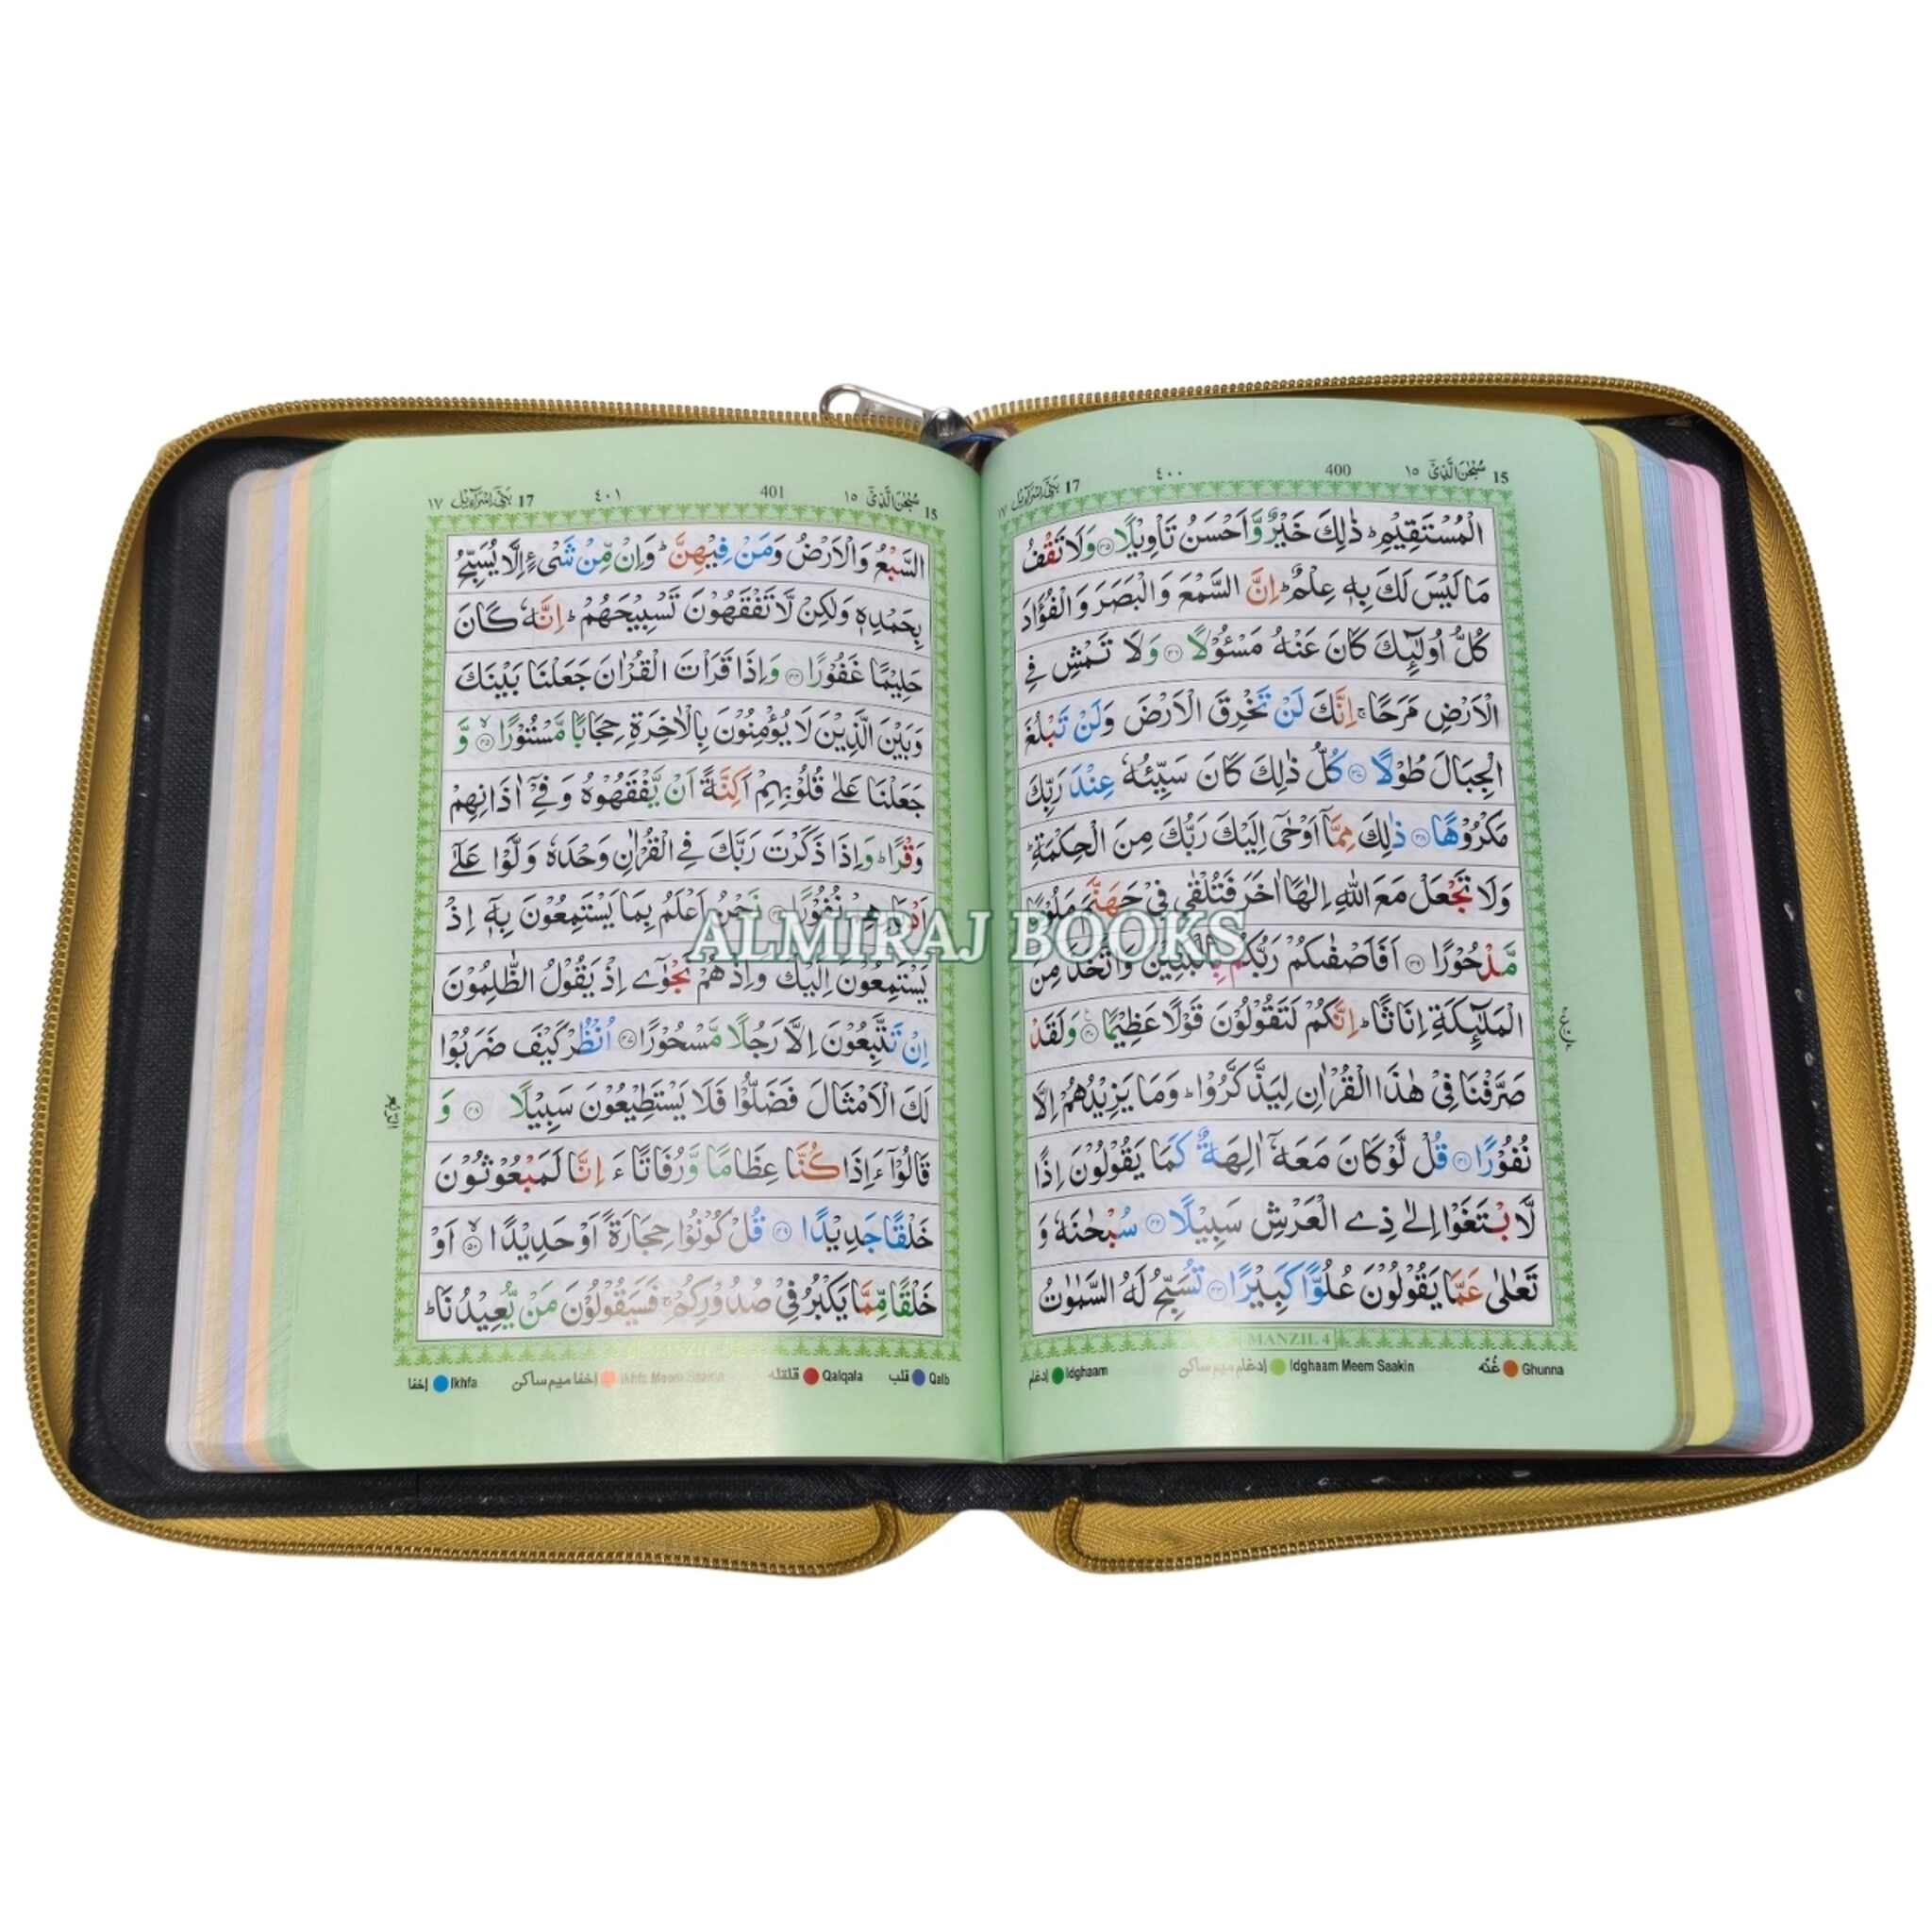 15 سُبْحٰنَ الَّذِیْۤ ١٥ 400 ٤٠٠ 17 بَنِیْۤ اِسْرَآءِیْل ١٧
الْمُسْتَقِیْمِ ؕ ذٰلِكَ خَیْرٌ وَّاَحْسَنُ تَاْوِیْلًا ۝۳۵ وَلَا تَقْفُ
مَا لَیْسَ لَكَ بِهٖ عِلْمٌ ؕ اِنَّ السَّمْعَ وَالْبَصَرَ وَالْفُؤَادَ
كُلُّ اُولٰٓىِٕكَ كَانَ عَنْهُ مَسْـُٔوْلًا ۝۳۶ وَلَا تَمْشِ فِی
الْاَرْضِ مَرَحًا ۚ اِنَّكَ لَنْ تَخْرِقَ الْاَرْضَ وَلَنْ تَبْلُغَ
الْجِبَالَ طُوْلًا ۝۳۷ كُلُّ ذٰلِكَ كَانَ سَیِّئُهٗ عِنْدَ رَبِّكَ
مَكْرُوْهًا ۝۳۸ ذٰلِكَ مِمَّاۤ اَوْحٰۤی اِلَیْكَ رَبُّكَ مِنَ الْحِكْمَةِ ؕ
وَلَا تَجْعَلْ مَعَ اللّٰهِ اِلٰهًا اٰخَرَ فَتُلْقٰی فِیْ جَهَنَّمَ مَلُوْمًا
مَّدْحُوْرًا ۝۳۹ اَفَاَصْفٰىكُمْ رَبُّكُمْ بِالْبَنِیْنَ وَاتَّخَذَ مِنَ
الْمَلٰٓىِٕكَةِ اِنَاثًا ؕ اِنَّكُمْ لَتَقُوْلُوْنَ قَوْلًا عَظِیْمًا ۝۴۰ وَلَقَدْ
صَرَّفْنَا فِیْ هٰذَا الْقُرْاٰنِ لِیَذَّكَّرُوْا ؕ وَمَا یَزِیْدُهُمْ اِلَّا
نُفُوْرًا ۝۴۱ قُلْ لَّوْ كَانَ مَعَهٗۤ اٰلِهَةٌ كَمَا یَقُوْلُوْنَ اِذًا
لَّابْتَغَوْا اِلٰی ذِی الْعَرْشِ سَبِیْلًا ۝۴۲ سُبْحٰنَهٗ وَ
تَعٰلٰی عَمَّا یَقُوْلُوْنَ عُلُوًّا كَبِیْرًا ۝۴۳ تُسَبِّحُ لَهُ السَّمٰوٰتُ
MANZIL 4
Ghunna غُنّه Idghaam Meem Saakin إدغام میم ساكن Idghaam إدغام
15 سُبْحٰنَ الَّذِیْۤ ١٥ 401 ٤٠١ 17 بَنِیْۤ اِسْرَآءِیْل ١٧
السَّبْعُ وَالْاَرْضُ وَمَنْ فِیْهِنَّ ؕ وَاِنْ مِّنْ شَیْءٍ اِلَّا یُسَبِّحُ
بِحَمْدِهٖ وَلٰكِنْ لَّا تَفْقَهُوْنَ تَسْبِیْحَهُمْ ؕ اِنَّهٗ كَانَ
حَلِیْمًا غَفُوْرًا ۝۴۴ وَاِذَا قَرَاْتَ الْقُرْاٰنَ جَعَلْنَا بَیْنَكَ
وَبَیْنَ الَّذِیْنَ لَا یُؤْمِنُوْنَ بِالْاٰخِرَةِ حِجَابًا مَّسْتُوْرًا ۝۴۵ وَّ
جَعَلْنَا عَلٰی قُلُوْبِهِمْ اَكِنَّةً اَنْ یَّفْقَهُوْهُ وَفِیْۤ اٰذَانِهِمْ
وَقْرًا ؕ وَاِذَا ذَكَرْتَ رَبَّكَ فِی الْقُرْاٰنِ وَحْدَهٗ وَلَّوْا عَلٰۤی
اَدْبَارِهِمْ نُفُوْرًا ۝۴۶ نَحْنُ اَعْلَمُ بِمَا یَسْتَمِعُوْنَ بِهٖۤ اِذْ
یَسْتَمِعُوْنَ اِلَیْكَ وَاِذْ هُمْ نَجْوٰۤی اِذْ یَقُوْلُ الظّٰلِمُوْنَ
اِنْ تَتَّبِعُوْنَ اِلَّا رَجُلًا مَّسْحُوْرًا ۝۴۷ اُنْظُرْ كَیْفَ ضَرَبُوْا
لَكَ الْاَمْثَالَ فَضَلُّوْا فَلَا یَسْتَطِیْعُوْنَ سَبِیْلًا ۝۴۸ وَ
قَالُوْۤا ءَاِذَا كُنَّا عِظَامًا وَّرُفَاتًا ءَاِنَّا لَمَبْعُوْثُوْنَ
خَلْقًا جَدِیْدًا ۝۴۹ قُلْ كُوْنُوْا حِجَارَةً اَوْ حَدِیْدًا ۝۵۰ اَوْ
خَلْقًا مِّمَّا یَكْبُرُ فِیْ صُدُوْرِكُمْ ۚ فَسَیَقُوْلُوْنَ مَنْ یُّعِیْدُنَا ؕ
Qalb قلب Qalqala قلقله Ikhfa Meem Saakin إخفا میم ساكن Ikhfa إخفا
ALMIRAJ BOOKS